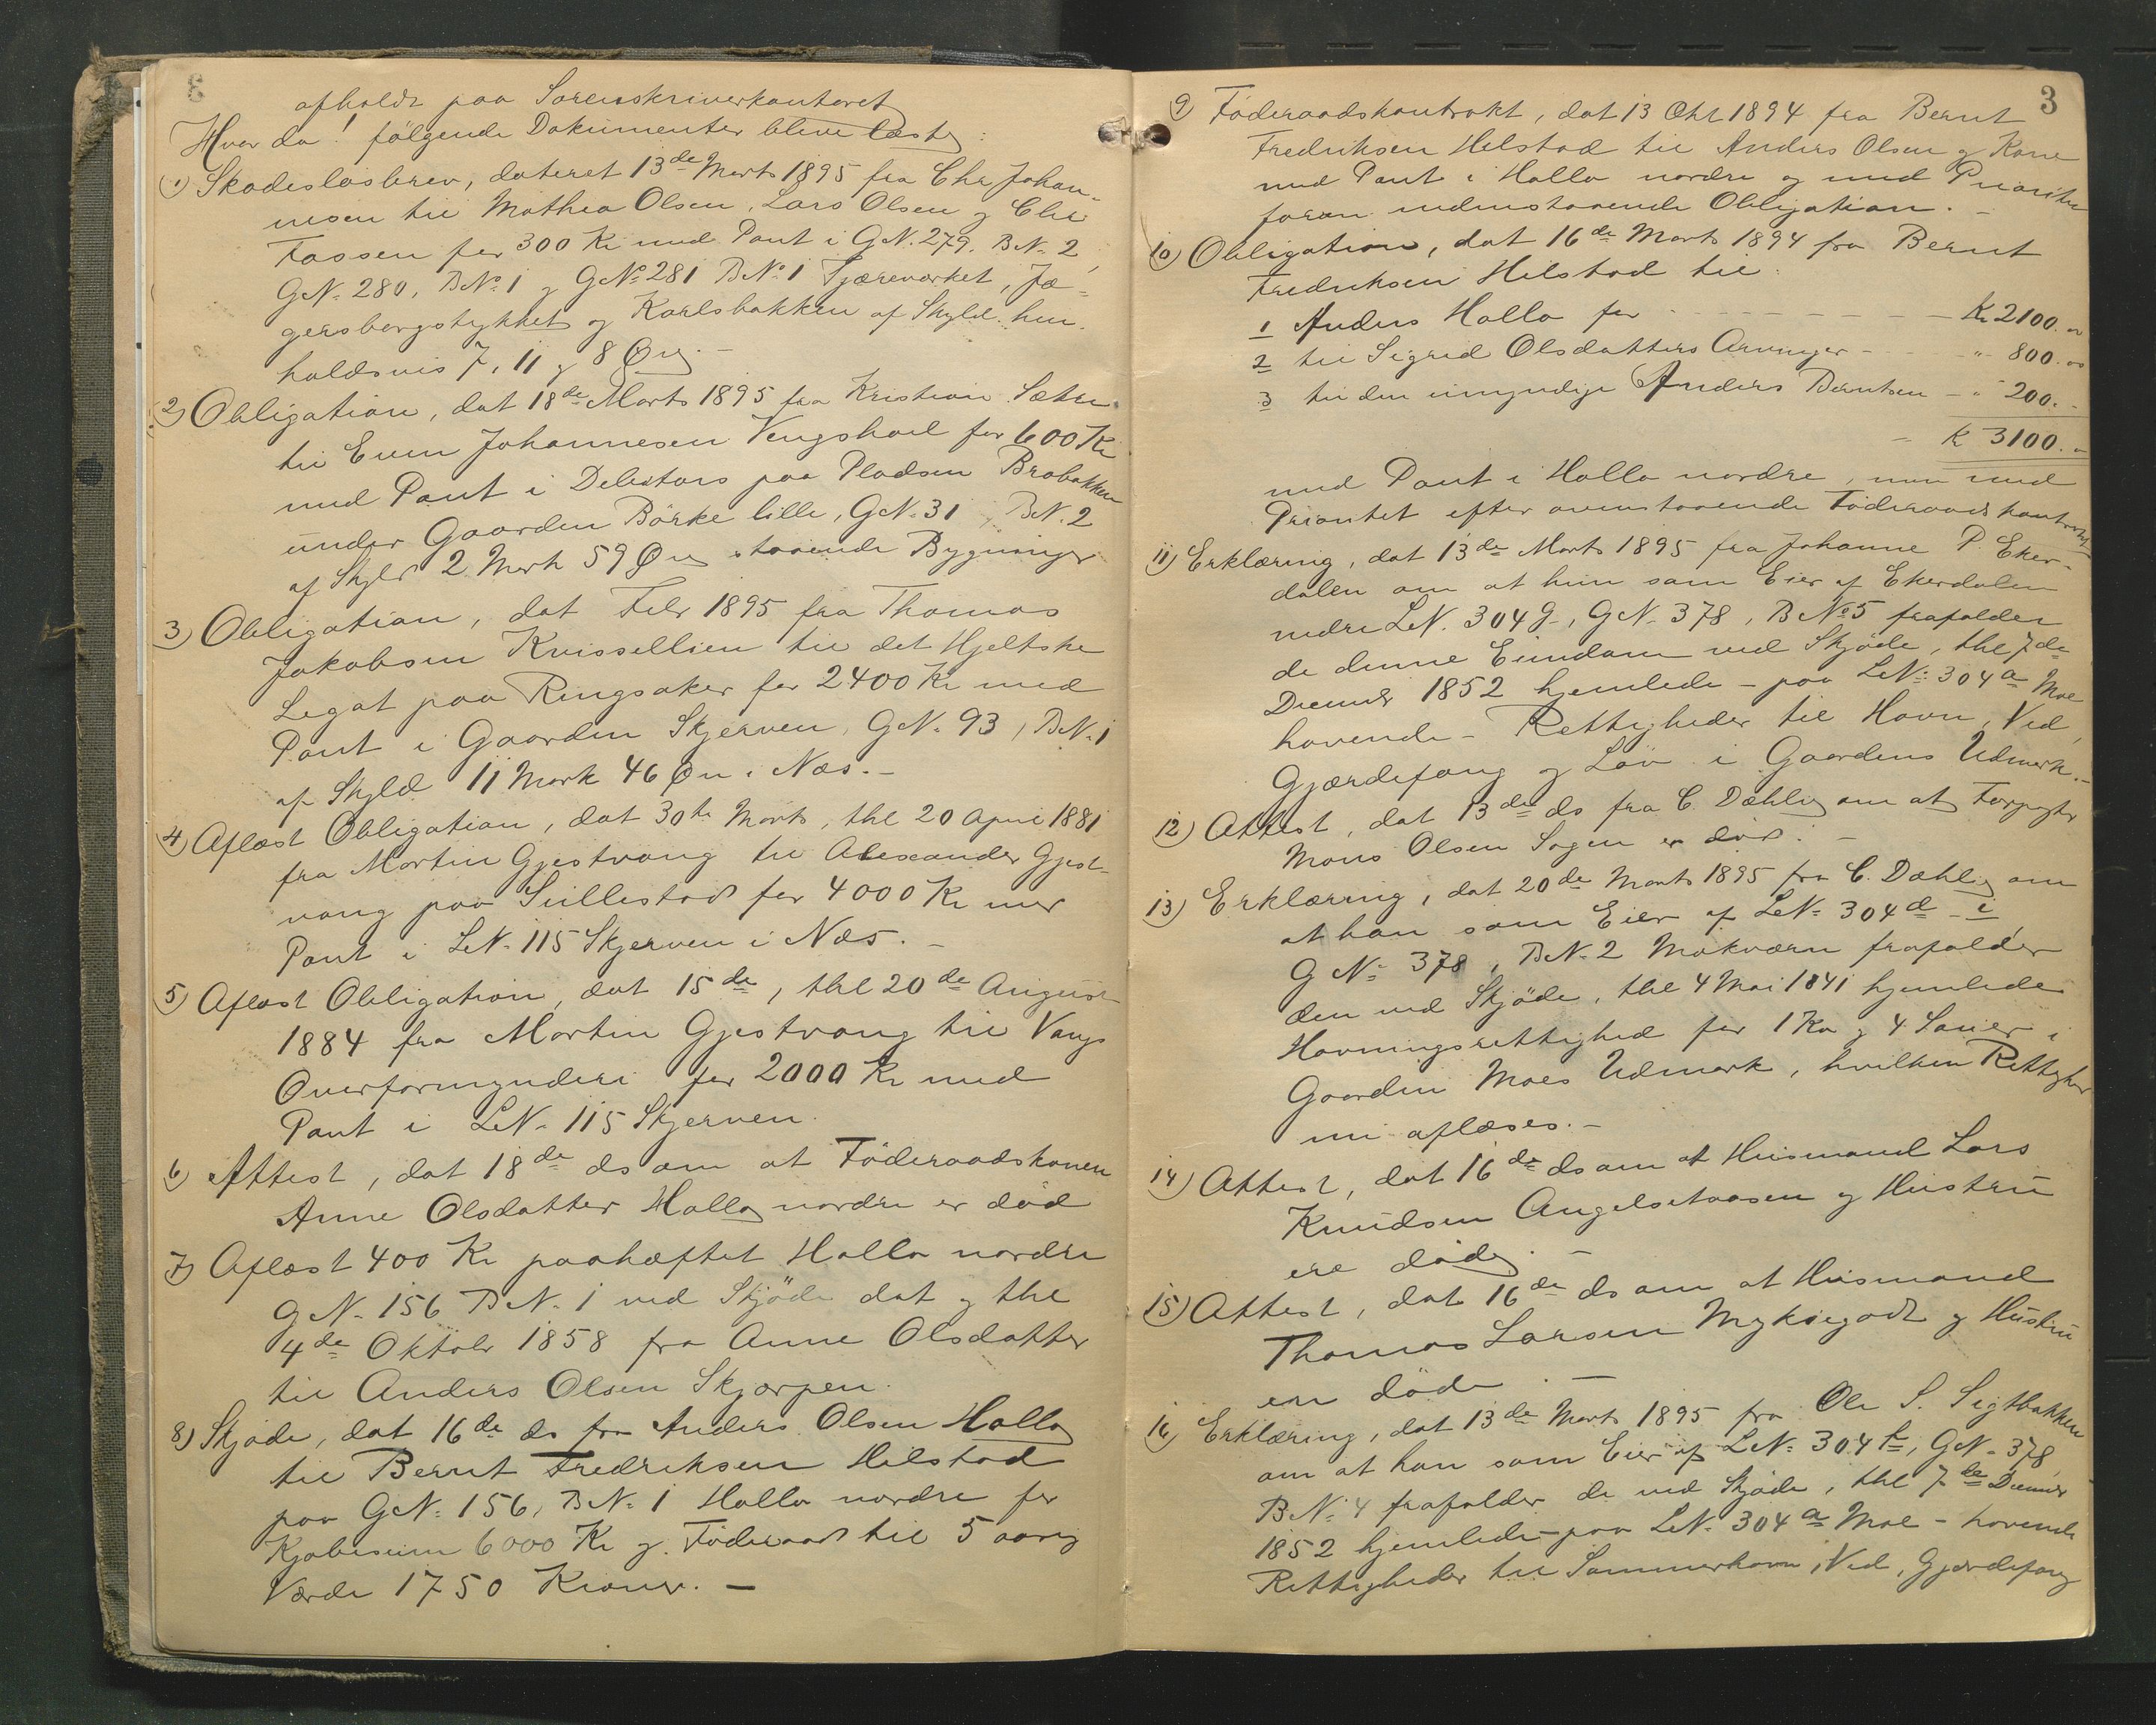 afholdt paa Sorenskriverkontoret
Hvor da! følgende Dokumenter bleve læste:
1) Skadesløsbrev, dateret 13de Marts 1895 fra Chr Johan-
nesen til Mathea Olsen, Lars Olsen og Chr
Fossen for 300 Kr med Pant i GN. 279. BN. 2,
GN. 280, BNo 1 og GNo 281 BNo 1 Tjæreværket, Jæ-
gersbergstykket og Karlsbakken af Skyld hen-
holdsvis 7, 11 og 8 Øre. -
2) Obligation, dat 18de Marts 1895 fra Kristian Sætre
til Even Johannesen Vengshoel for 600 Kr
med Pant i Debitors paa Pladsen Brobakken
under Gaarden Börke lille, GN. 31, BN. 2
af Skyld 2 Mark 59 Øre staaende Bygninger
3) Obligation, dat Febr 1895 fra Thomas
Jakobsen Kvissellien til det Hjeltske
Legat paa Ringsaker for 2400 Kr med
Pant i Gaarden Skjerven, GN. 93, BN. 1
af Skyld 11 Mark 46 Øre i Næs. -
4) Aflæst Obligation, dat 30te Marts, thl 20 April 1881
fra Martin Gjestvang til Alexander Gjest-
vang paa Sillestad for 4000 Kr mod
Pant i LN. 115 Skjerven i Næs. -
5) Aflæst Obligation, dat 15de, thl 20de August
1884 fra Martin Gjestvang til Vangs
Overformynderi for 2000 Kr med
Pant i LN. 115 Skjerven.
6) Attest, dat 18de ds om at Föderaadskonen
Anne Olsdatter Halla nordre er död
7) Aflæst 400 Kr paahæftet Halla nordre
GN. 156 BN. 1 ved Skjöde dat og thl
4de Oktobr 1858 fra Anne Olsdatter
til Anders Olsen Skjærpen.
8) Skjøde, dat 16de ds fra Anders Olsen Halla
til Bernt Fredriksen Hilstad
paa GN. 156, BN. 1 Halla nordre for
Kjøbesum 6000 Kr og Föderaad til 5 aarig
Værdi 1750 Kroner. -
3
9) Föderaadskontrakt, dat 13 Okt 1894 fra Bernt
Fredriksen Hilstad til Anders Olsen og Kone
med Pant i Halla nordre og med Prioritet
foran nedenstaaende Obligation. -
10) Obligation, dat 16de Marts 1894 fra Bernt
Fredriksen Hilstad til:
1 Anders Halla for - - - - - Kr 2100. "
2 til Sigrid Olsdatters Arvinger - - - " 800. "
3 til den umyndige Anders Berntsen - " 200. -
- K 3100. "
med Pant i Halla nordre, men med
Prioritet efter ovenstaaende Föderaadskontrakt
11) Erklæring, dat 13de Marts 1895 fra Johanne P. Eker-
dalen om at hun som Eier af Ekerdalen
nedre LN. 304 g, GN. 378, BNo 5 frafalder
de denne Eiendom ved Skjöde, thl 7de
Decembr 1852 hjemlede - paa LN. 304 a Moe
havende - Rettigheder til Havn, Ved,
Gjærdefang og Löv i Gaardens Udmark. -
12) Attest, dat 13de ds fra C. Dæhli om at Forpagter
Mons Olsen Sogen er död. -
13) Erklæring, dat 20de Marts 1895 fra C. Dæhli om
at han som Eier af LN. 304 d - i,
GN. 378, BN. 2 Mokværn frafalder
den ved Skjöde, thl 4 Mai 1841 hjemlede
Havningsrettighed for 1 Ko og 4 Sauer i
Gaarden Moes Udmark, hvilken Rettighed
nu aflæses. -
14) Attest, dat 16de ds om at Husmand Lars
Knudsen Angelsetaasen og Hustru
ere döde. -
15) Attest, dat 16de ds om at Husmand
Thomas Larsen Myksegodt og Hustru
ere döde. -
16) Erklæring, dat 13de Marts 1895 fra Ole S. Sigtbakken
om at han som Eier af LN. 304 f, GN. 378,
BN. 4 frafalder de ved Skjöde, thl 7de Decembr
1852 hjemlede - paa LN. 304 a Moe - havende
Rettigheder til Sommerhavn, Ved, Gjærdefang